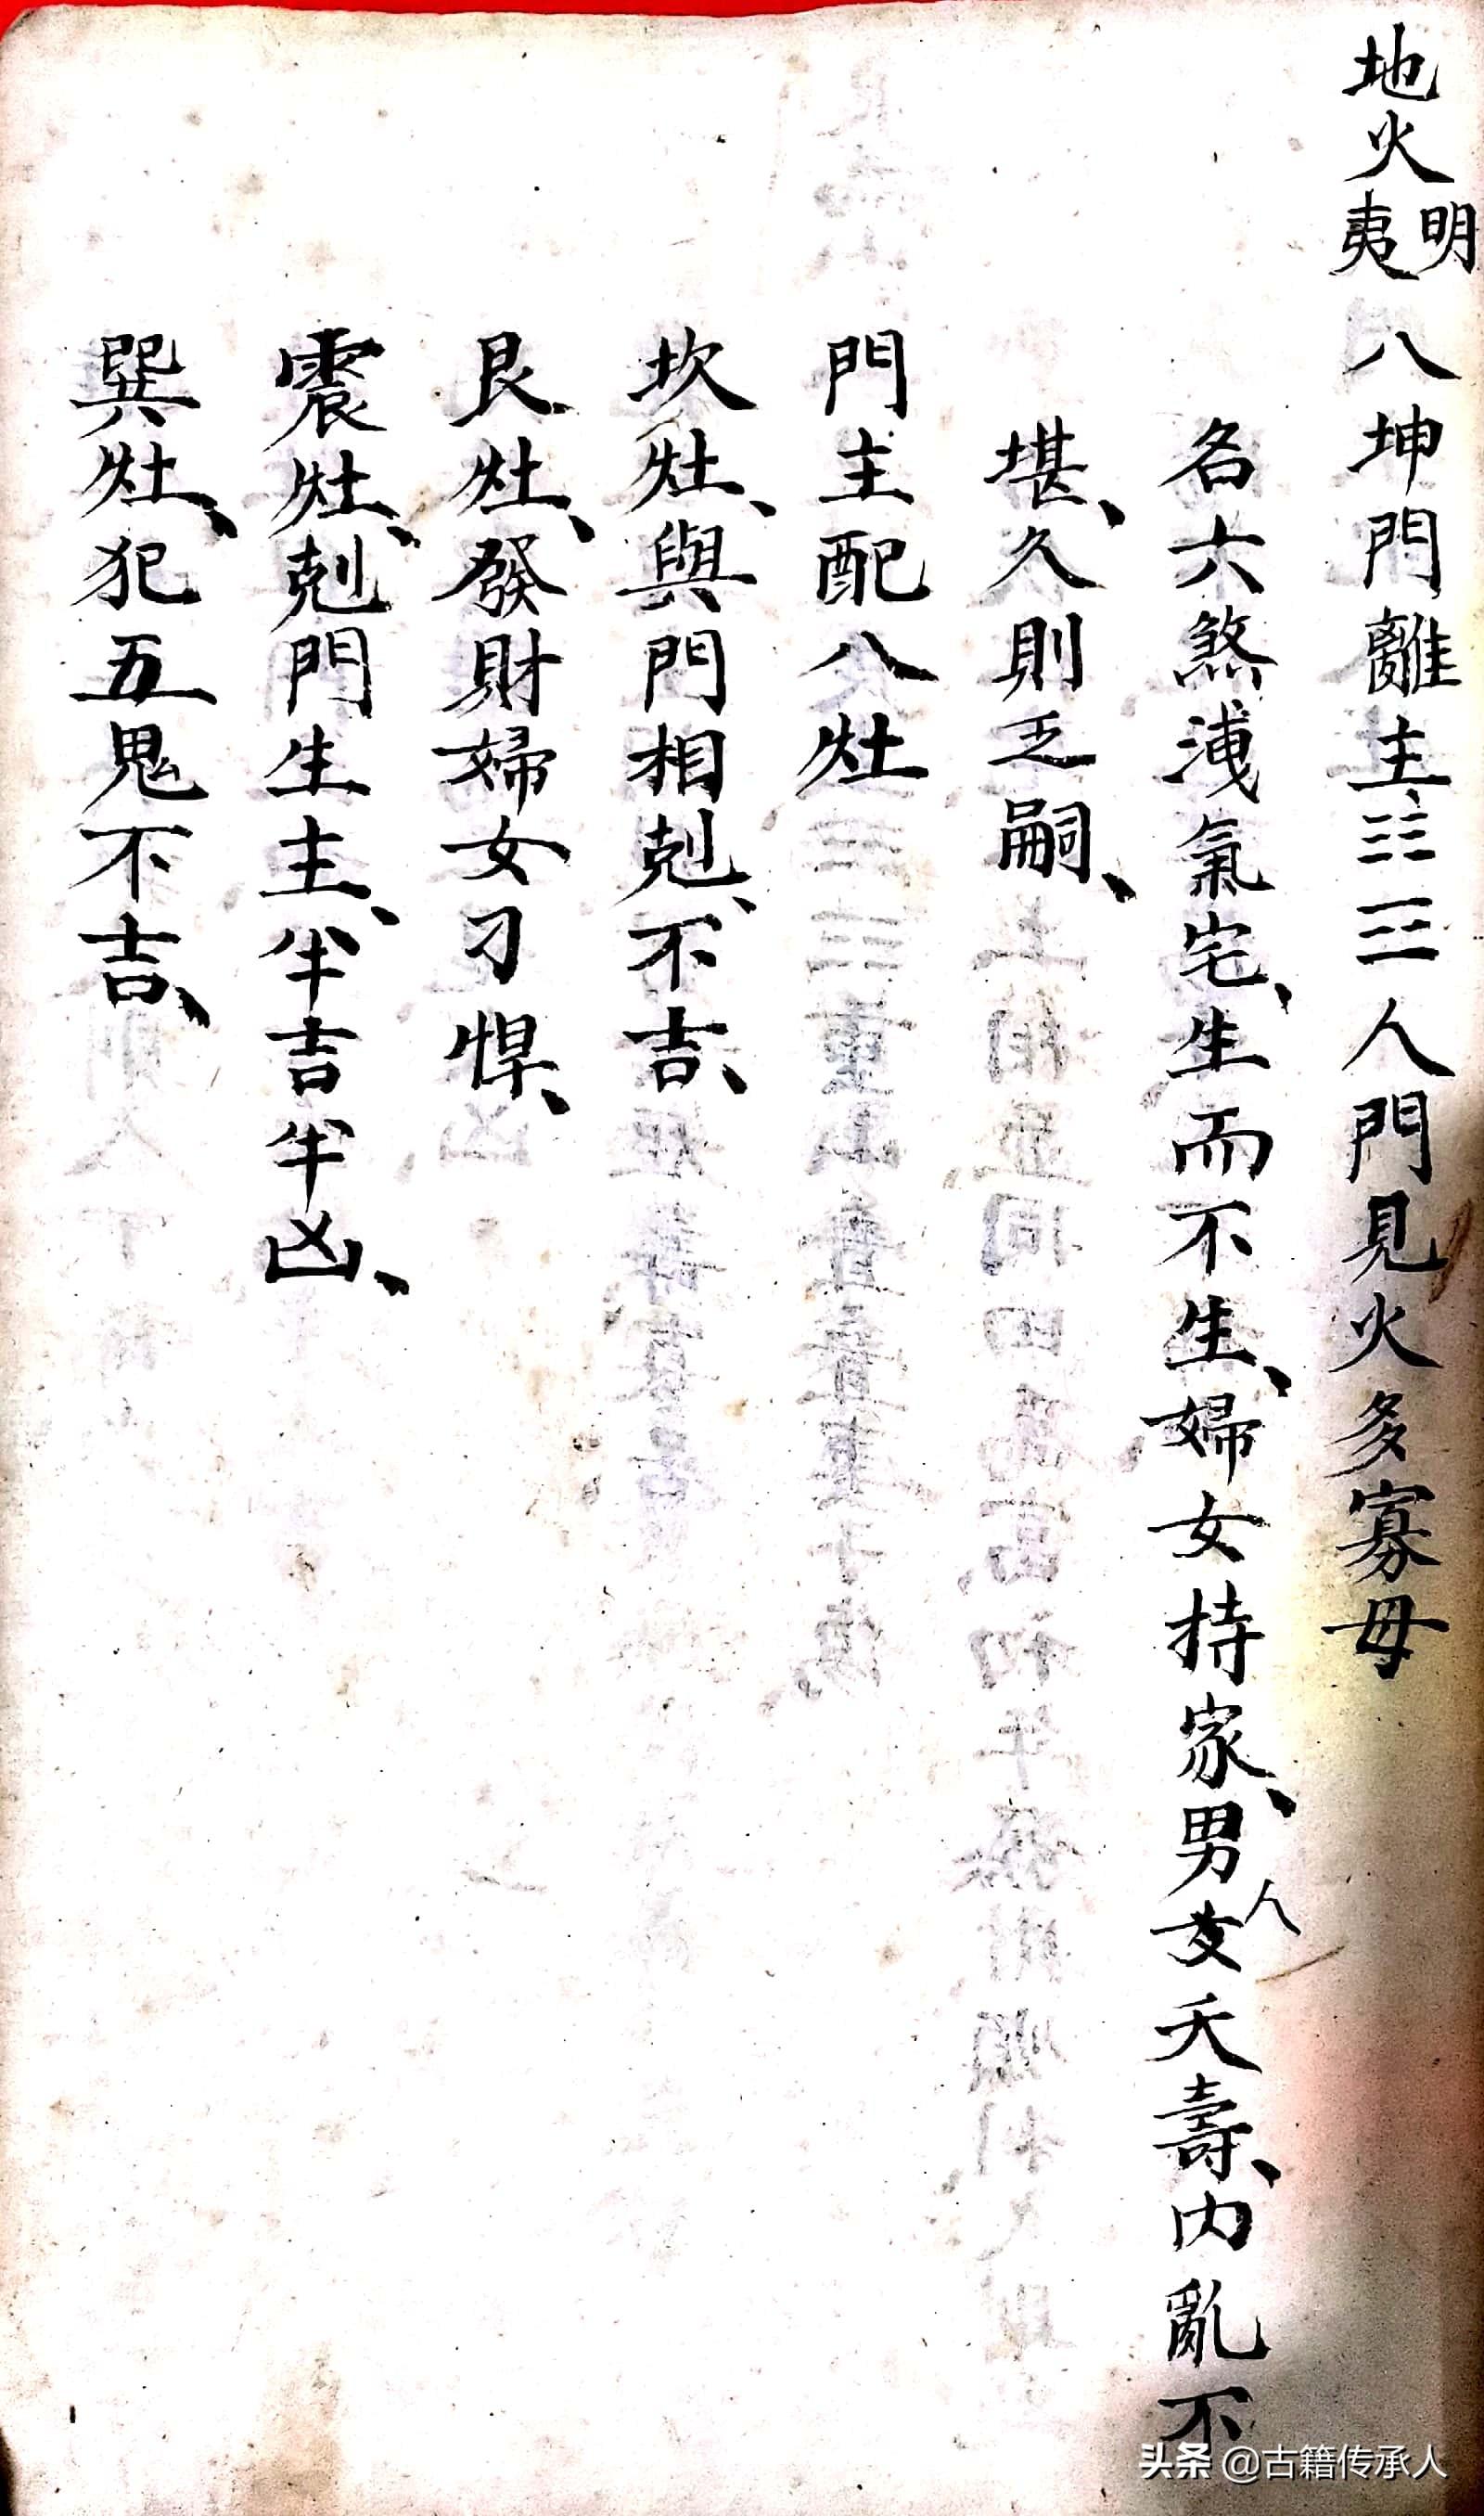 地火明夷 八坤門離主☷☲人門見火多寡母
名六煞洩氣宅、生而不生、婦女持家、男人女夭壽、内亂不
堪、久則乏嗣、
門主配八灶
坎灶、與門相剋、不吉、
艮灶、發財婦女刁悍、
震灶、剋門生主、半吉半凶、
巽灶、犯五鬼不吉、
头条 @古籍传承人